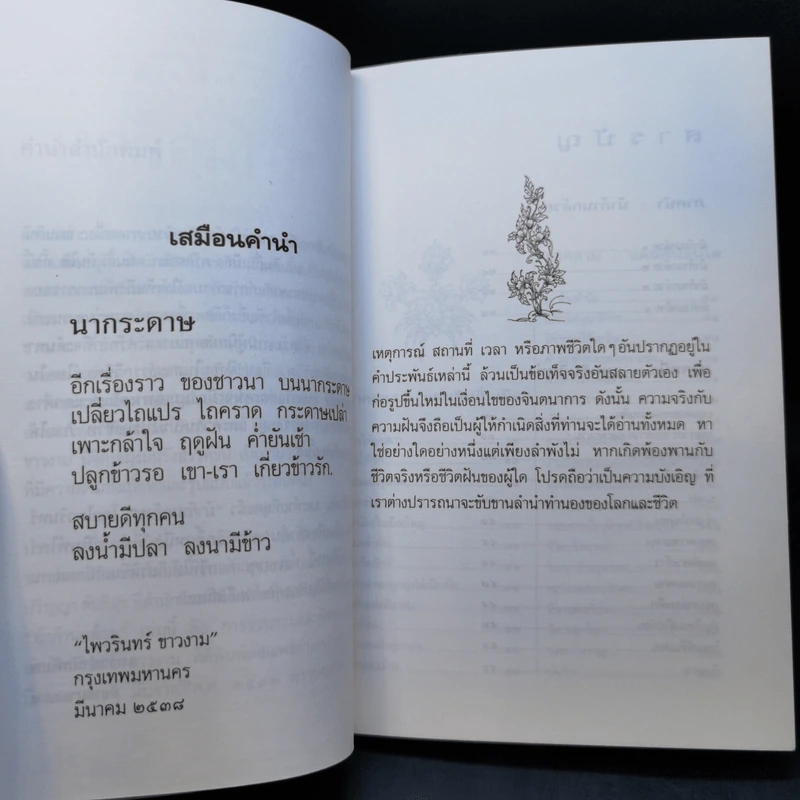 เสมือนคำนำ
นากระดาษ
อีกเรื่องราว ของชาวนา บนนากระดาษ
เปลี่ยวไถแปร ไถคราด กระดาษเปล่า
เพาะกล้าใจ ฤดูฝัน ค่ำยันเช้า
ปลูกข้าวรอ เขา-เรา เกี่ยวข้าวรัก.
สบายดีทุกคน
ลงน้ำมีปลา ลงนามีข้าว
“ไพวรินทร์ ขาวงาม”
กรุงเทพมหานคร
มีนาคม ๒๕๓๘
เหตุการณ์ สถานที่ เวลา หรือภาพชีวิตใด ๆ อันปรากฏอยู่ใน
คำประพันธ์เหล่านี้ ล้วนเป็นข้อเท็จจริงอันสลายตัวเอง เพื่อ
ก่อรูปขึ้นใหม่ในเงื่อนไขของจินตนาการ ดังนั้น ความจริงกับ
ความฝันจึงถือเป็นผู้ให้กำเนิดสิ่งที่ท่านจะได้อ่านทั้งหมด หา
ใช่อย่างใดอย่างหนึ่งแต่เพียงลำพังไม่ หากเกิดพ้องพานกับ
ชีวิตจริงหรือชีวิตฝันของผู้ใด โปรดถือว่าเป็นความบังเอิญ ที่
เราต่างปรารถนาจะขับขานลำนำทำนองของโลกและชีวิต
สารบัญ